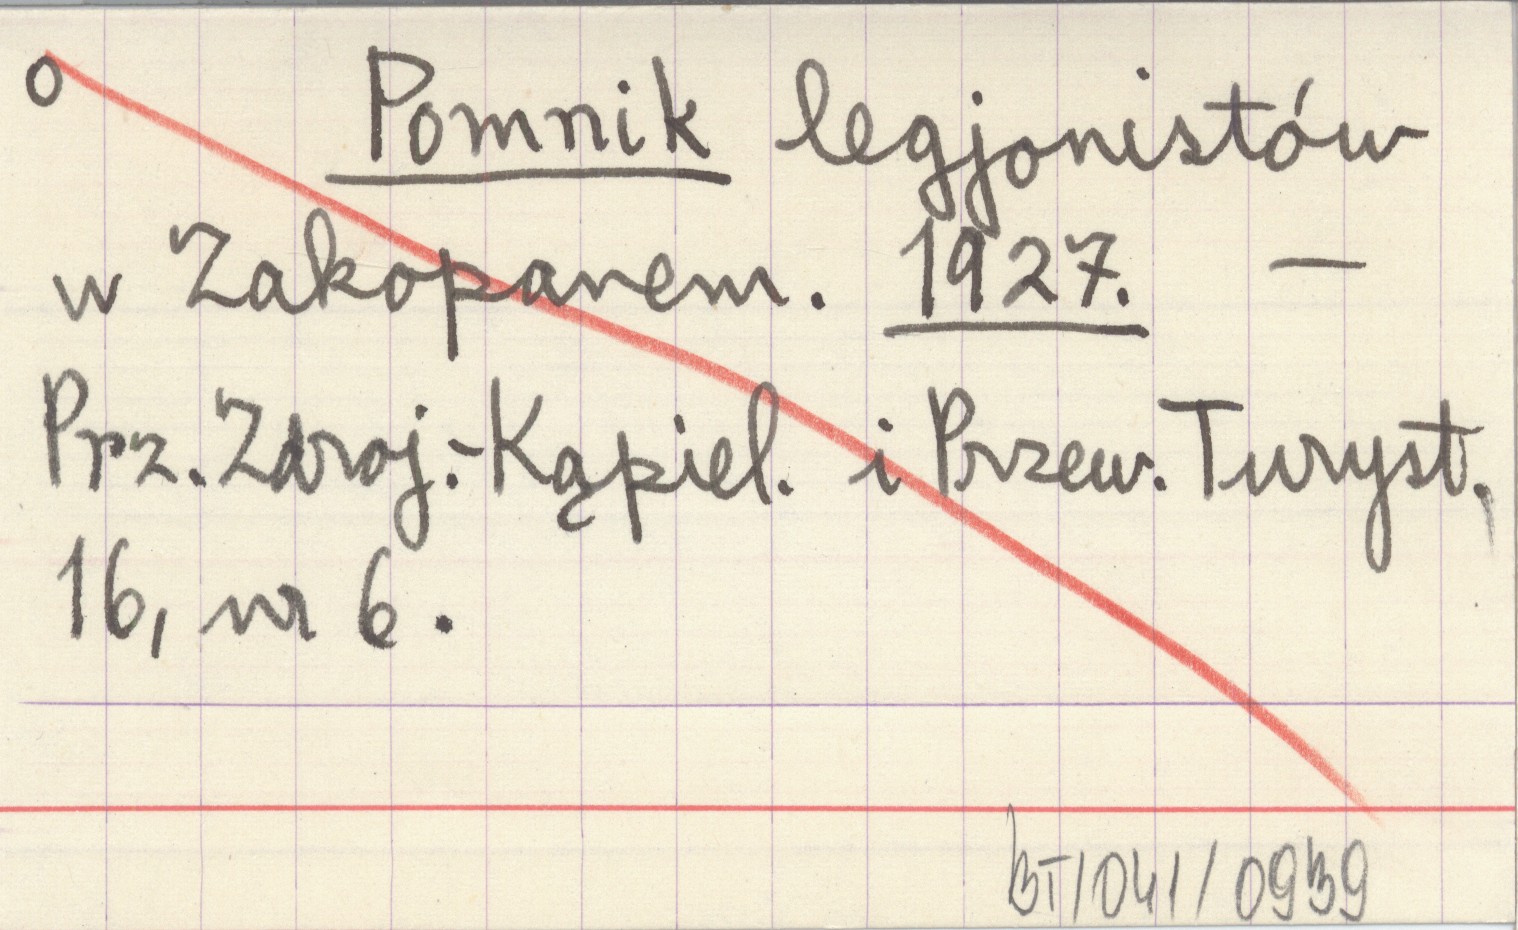 o Pomnik legjonistów
w Zakopanem. 1927. —
Prz. Zdroj.-Kąpiel. i Przew. Turyst.,
16, nr 6.
BT/041/0939